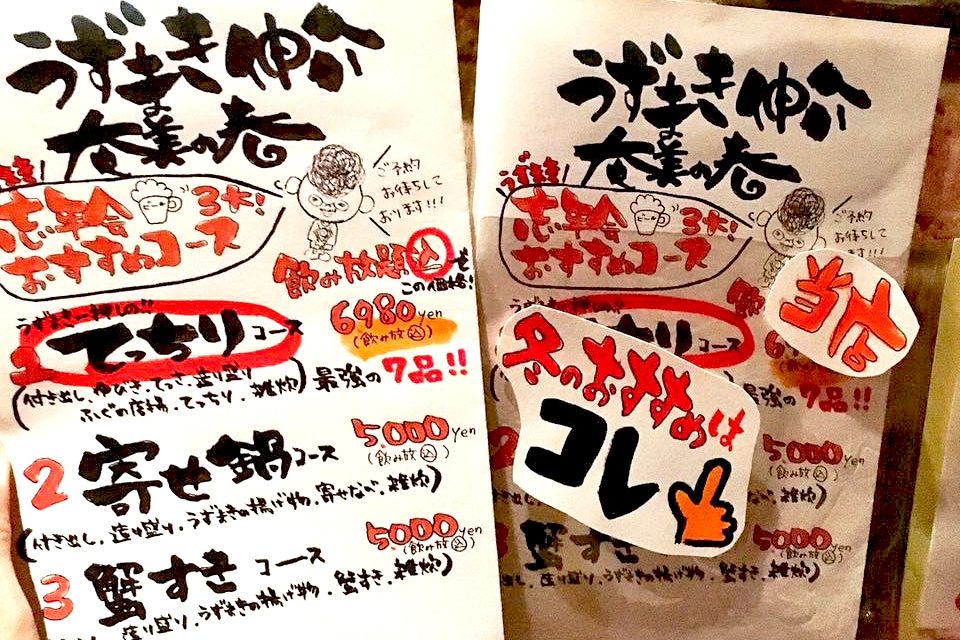 うずまき伸介
奄美の巻
うずまき
忘年会 3大!
おすすめコース
ご予約
お待ちして
おります!!!
飲み放題込で
この価格!
うずまき一押しの!!
てっちりコース
6980yen
(飲み放込)
最強の7品!!
2 寄せ鍋コース
5000yen
(飲み放込)
(付き出し、造り盛り、うずまきの揚げ物、寄せなべ、雑炊)
3 蟹すきコース
5000yen
(飲み放込)
造り盛り、うずまきの揚げ物、蟹すき、雑炊)
うずまき伸介
奄美の巻
うずまき
忘年会 3大!
おすすめコース
ご予約
お待ちして
冬のおすすめは
コレ
コース
最強の7品!!
5000yen
(飲み放込)
雑炊)
5000yen
(飲み放込)
蟹すき
造り盛り、うずまきの揚げ物、蟹すき、雑炊)